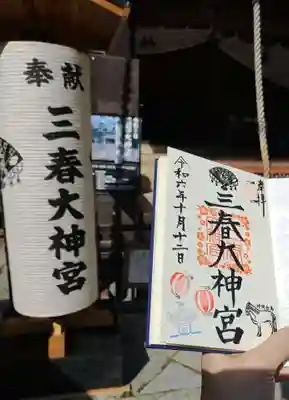 奉献
三春大神宮
奉拝
三春大神宮
令和六年十月十二日